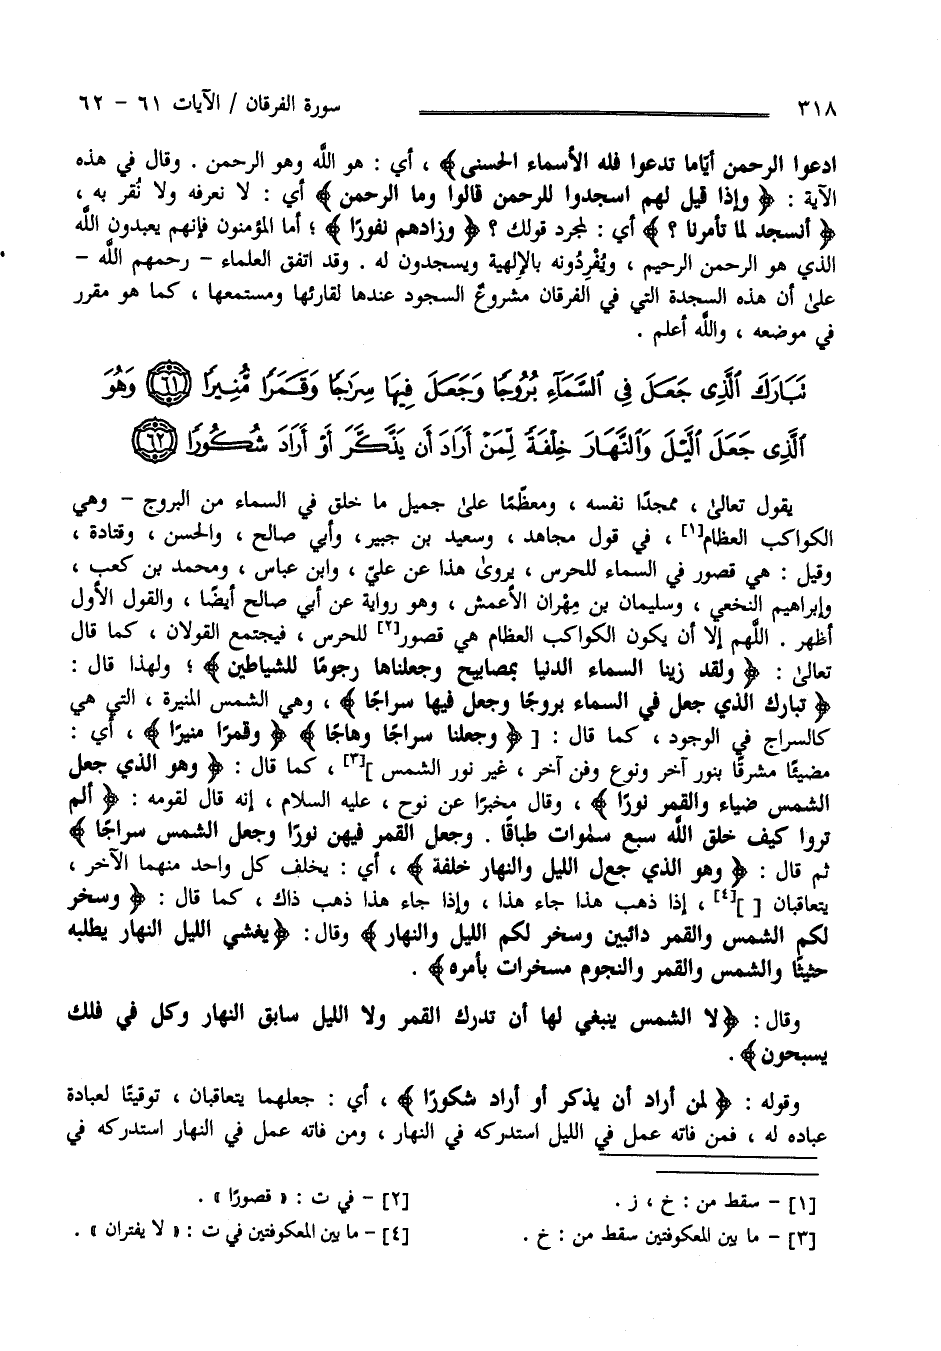 ٣١٨ سورة الفرقان / الآيات ٦١ - ٦٢
ادعوا الرحمن أيّاما تدعوا فله الأسماء الحسنى﴾ ، أي : هو اللَّه وهو الرحمن . وقال في هذه
الآية : ﴿ وإذا قيل لهم اسجدوا للرحمن قالوا وما الرحمن ﴾ أي : لا نعرفه ولا نُقر به ،
﴿ أنسجد لما تأمرنا ؟ ﴾ أي : لمجرد قولك ؟ ﴿ وزادهم نفورًا ﴾ ؛ أما المؤمنون فإنهم يعبدون اللَّه
الذي هو الرحمن الرحيم ، ويُفْرِدُونه بالإلهية ويسجدون له . وقد اتفق العلماء - رحمهم اللَّه -
علىٰ أن هذه السجدة التي في الفرقان مشروعٌ السجود عندها لقارئها ومستمعها ، كما هو مقرر
في موضعه ، واللَّه أعلم .
تَبَارَكَ ٱلَّذِى جَعَلَ فِى ٱلسَّمَآءِ بُرُوجًا وَجَعَلَ فِيهَا سِرَٰجًا وَقَمَرًا مُّنِيرًا ٦١ وَهُوَ
ٱلَّذِى جَعَلَ ٱلَّيْلَ وَٱلنَّهَارَ خِلْفَةً لِّمَنْ أَرَادَ أَن يَذَّكَّرَ أَوْ أَرَادَ شُكُورًا ٦٢
يقول تعالىٰ ، ممجدًا نفسه ، ومعظّمًا علىٰ جميل ما خلق في السماء من البروج - وهي
الكواكب العظام[١] ، في قول مجاهد ، وسعيد بن جبير، وأبي صالح ، والحسن ، وقتادة ،
وقيل : هي قصور في السماء للحرس ، يروىٰ هذا عن عليّ ، وابن عباس ، ومحمد بن كعب ،
وإبراهيم النخعي ، وسليمان بن مِهْران الأعمش ، وهو رواية عن أبي صالح أيضًا ، والقول الأول
أظهر . اللَّهم إلا أن يكون الكواكب العظام هي قصور[٢] للحرس ، فيجتمع القولان ، كما قال
تعالىٰ : ﴿ ولقد زينا السماء الدنيا بمصابيح وجعلناها رجومًا للشياطين ﴾ ؛ ولهذا قال :
﴿ تبارك الذي جعل في السماء بروجًا وجعل فيها سراجًا ﴾ ، وهي الشمس المنيرة ، التي هي
كالسراج في الوجود ، كما قال : [ ﴿ وجعلنا سراجًا وهاجًا ﴾ ﴿ وقمرًا منيرًا ﴾ ، أي :
مضيئًا مشرقًا بنور آخر ونوع وفن آخر ، غير نور الشمس ][٣] ، كما قال : ﴿ وهو الذي جعل
الشمس ضياء والقمر نورًا ﴾ ، وقال مخبرًا عن نوح ، عليه السلام ، إنه قال لقومه : ﴿ ألم
تروا كيف خلق اللَّه سبع سمٰوات طباقًا . وجعل القمر فيهن نورًا وجعل الشمس سراجًا ﴾
ثم قال : ﴿ وهو الذي جعل الليل والنهار خلفة ﴾ ، أي : يخلف كل واحد منهما الآخر ،
يتعاقبان [ ][٤] ، إذا ذهب هذا جاء هذا ، وإذا جاء هذا ذهب ذاك ، كما قال : ﴿ وسخر
لكم الشمس والقمر دائبين وسخر لكم الليل والنهار ﴾ وقال: ﴿يغشي الليل النهار يطلبه
حثيثًا والشمس والقمر والنجوم مسخرات بأمره﴾ .
وقال: ﴿لا الشمس ينبغي لها أن تدرك القمر ولا الليل سابق النهار وكل في فلك
يسبحون﴾ .
وقوله : ﴿ لمن أراد أن يذكر أو أراد شكورًا ﴾ ، أي : جعلهما يتعاقبان ، توقيتًا لعبادة
عباده له ، فمن فاته عمل في الليل استدركه في النهار ، ومن فاته عمل في النهار استدركه في
[١] - سقط من : خ ، ز . [٢] - في ت : « قصورًا » .
[٣] - ما بين المعكوفتين سقط من : خ . [٤] - ما بين المعكوفتين في ت : « لا يفتران » .